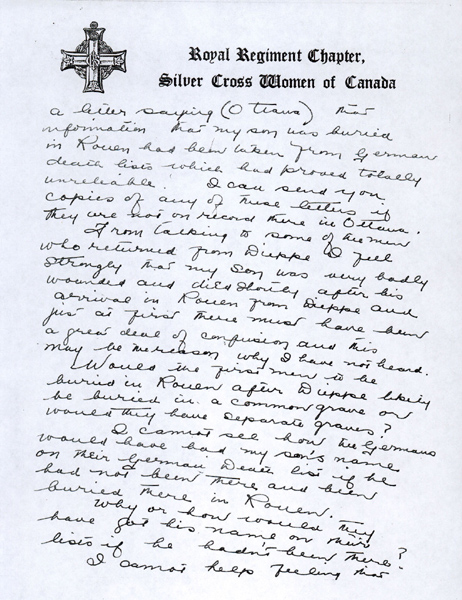 Royal Regiment Chapter,
Silver Cross Women of Canada
a letter saying (Ottawa) that
information that my son was buried
in Rouen had been taken from German
death lists which had proved totally
unreliable. I can send you
copies of any of these letters if
they are not on record there in Ottawa.
From talking to some of the men
who returned from Dieppe I feel
strongly that my son was very badly
wounded and died shortly after his
arrival in Rouen from Dieppe and
just at first there must have been
a great deal of confusion and this
may be the reason why I have not heard.
Would the first men to be
buried in Rouen after Dieppe likely
be buried in a common grave or
would they have separate graves?
I cannot see how the Germans
would have had my son's name
on their German Death list if he
had not been there and been
buried there in Rouen.
Why or how would they
have got his name on their
lists if he hadn't been there?
I cannot help feeling that